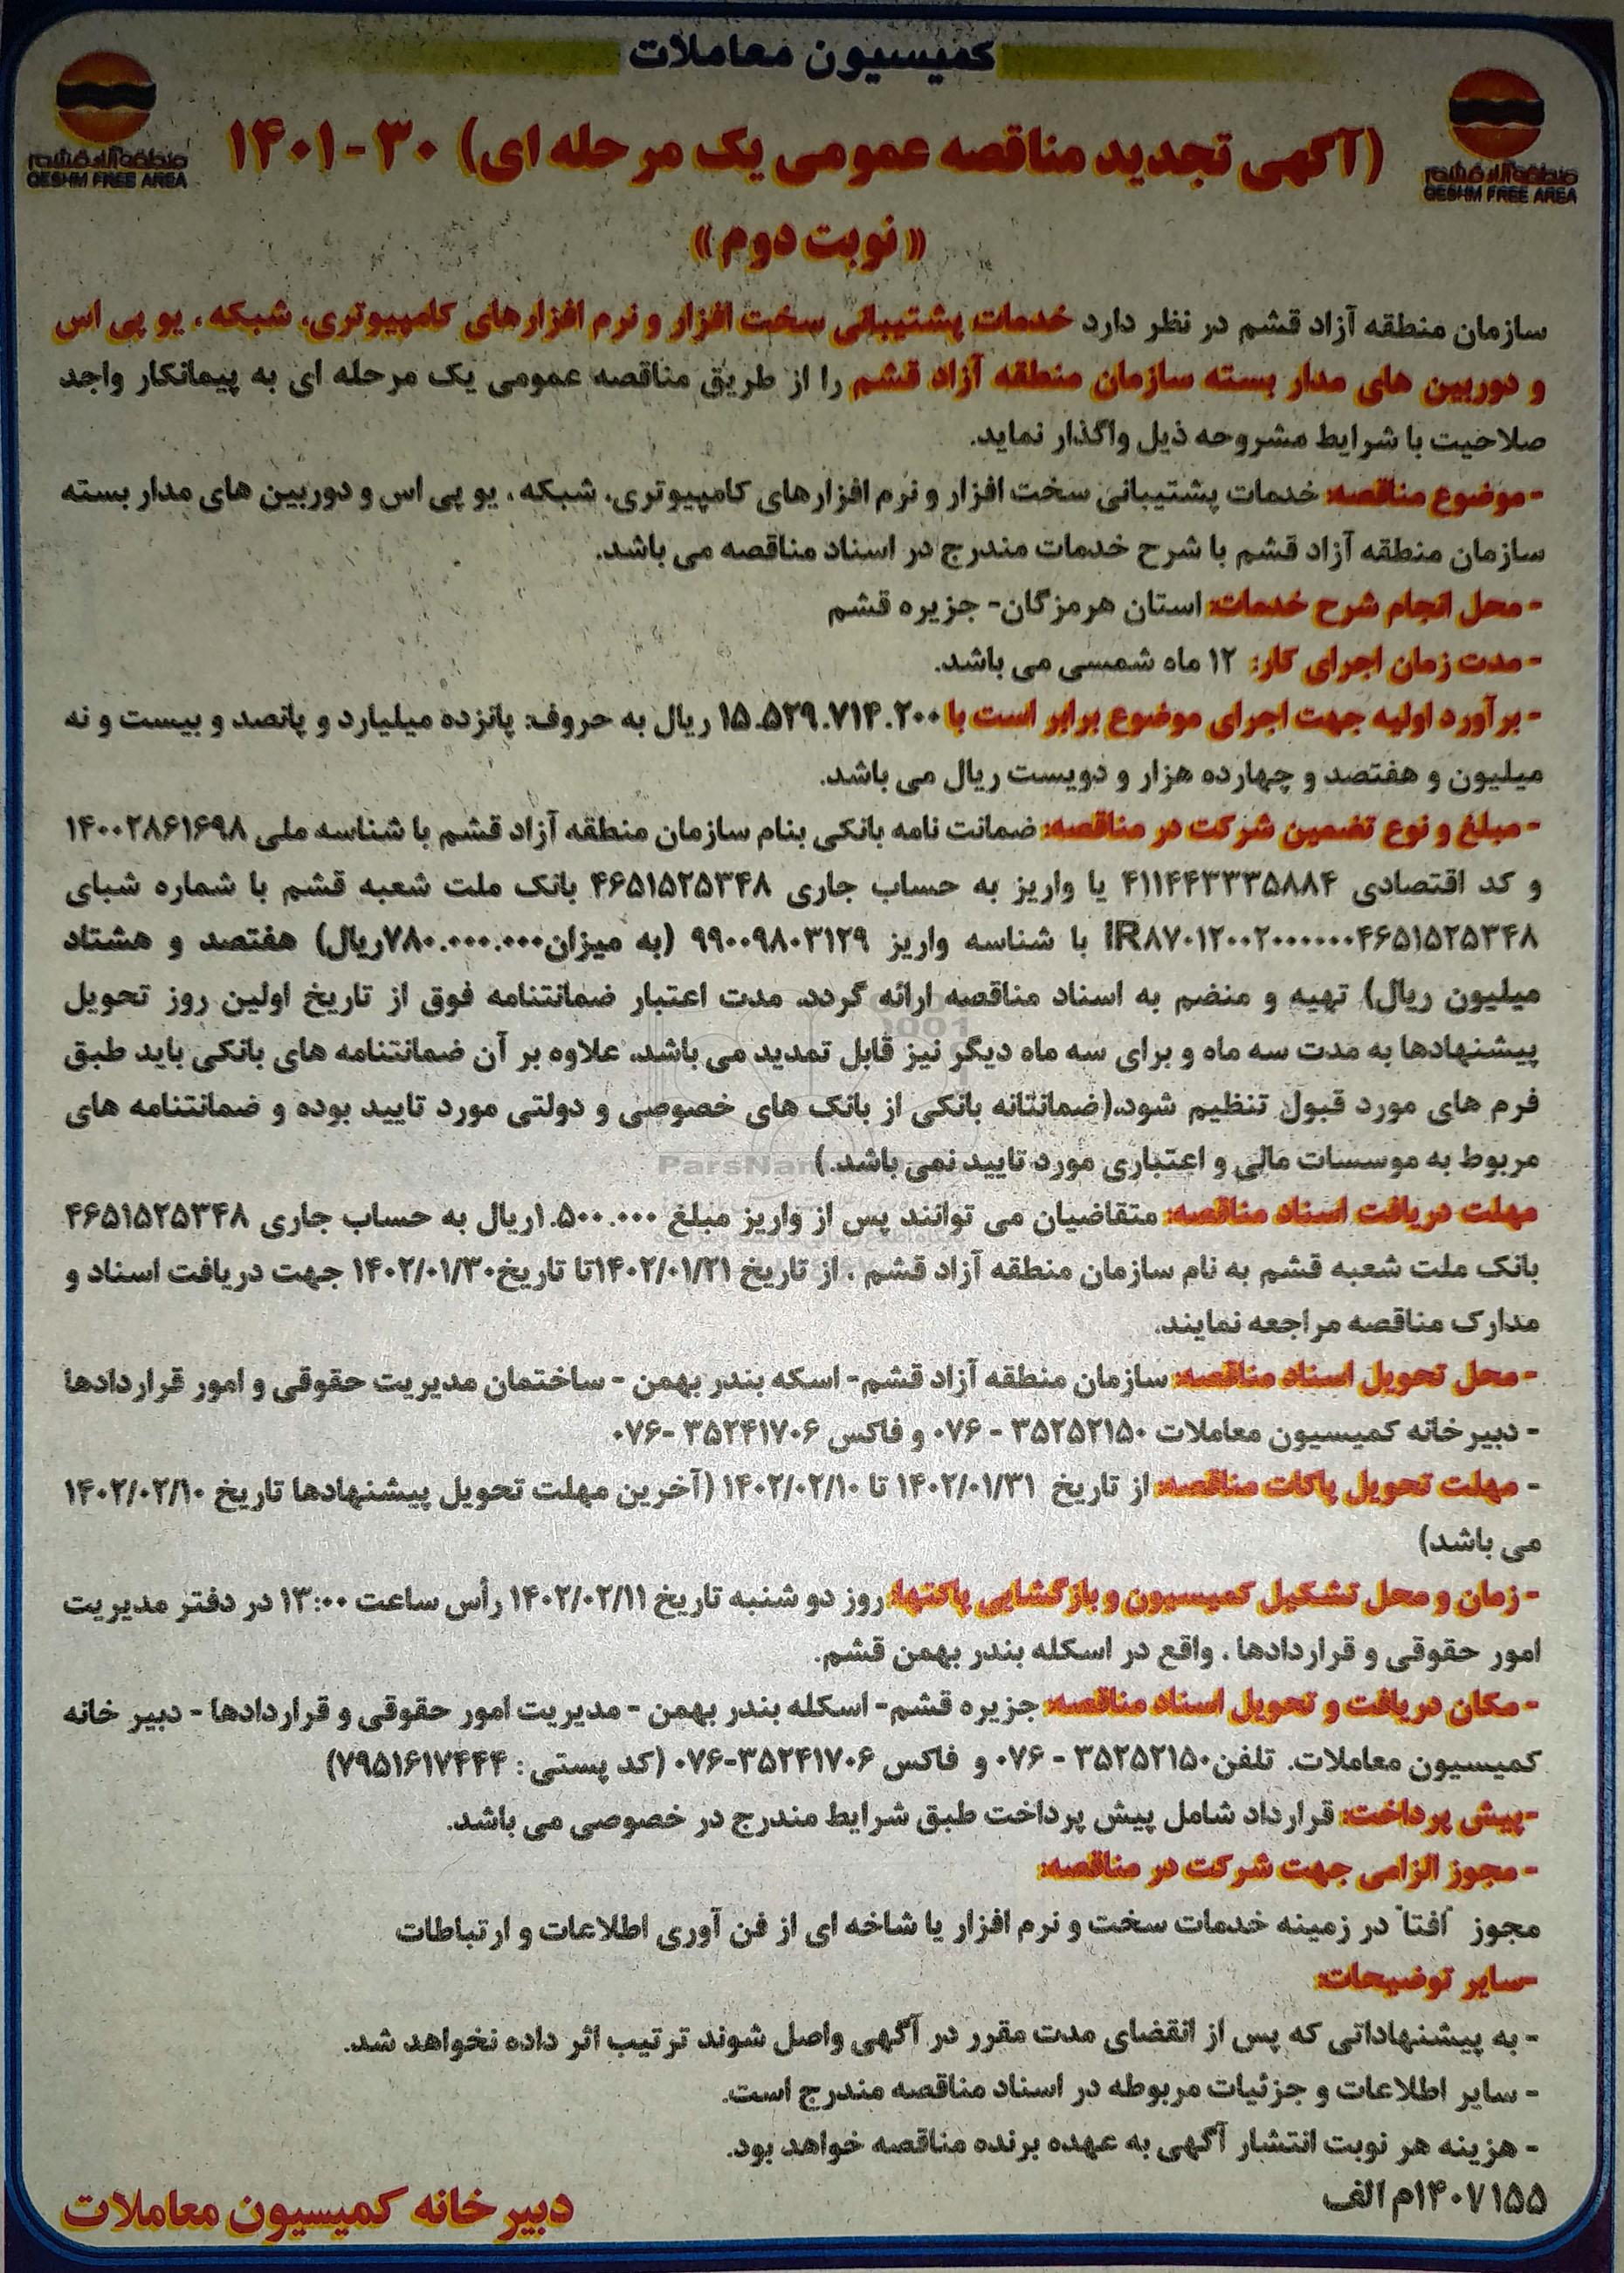 کمیسیون معاملات
منطقه آزاد قشم
QESHM FREE AREA
منطقه آزاد قشم
QESHM FREE AREA
(آگهی تجدید مناقصه عمومی یک مرحله ای) ۳۰-۱۴۰۱
« نوبت دوم »
سازمان منطقه آزاد قشم در نظر دارد خدمات پشتیبانی سخت افزار و نرم افزارهای کامپیوتری، شبکه ، یو پی اس
و دوربین های مدار بسته سازمان منطقه آزاد قشم را از طریق مناقصه عمومی یک مرحله ای به پیمانکار واجد
صلاحیت با شرایط مشروحه ذیل واگذار نماید.
- موضوع مناقصه: خدمات پشتیبانی سخت افزار و نرم افزارهای کامپیوتری، شبکه ، یو پی اس و دوربین های مدار بسته
سازمان منطقه آزاد قشم با شرح خدمات مندرج در اسناد مناقصه می باشد.
- محل انجام شرح خدمات: استان هرمزگان- جزیره قشم
- مدت زمان اجرای کار: ۱۲ ماه شمسی می باشد.
- برآورد اولیه جهت اجرای موضوع برابر است با ۱۵.۵۲۹.۷۱۴.۲۰۰ ریال به حروف: پانزده میلیارد و پانصد و بیست و نه
میلیون و هفتصد و چهارده هزار و دویست ریال می باشد.
- مبلغ و نوع تضمین شرکت در مناقصه: ضمانت نامه بانکی بنام سازمان منطقه آزاد قشم با شناسه ملی ۱۴۰۰۲۸۶۱۶۹۸
و کد اقتصادی ۴۱۱۴۴۳۳۳۵۸۸۴ یا واریز به حساب جاری ۴۶۵۱۵۲۵۳۴۸ بانک ملت شعبه قشم با شماره شبای
IR۸۷۰۱۲۰۰۲۰۰۰۰۰۰۴۶۵۱۵۲۵۳۴۸ با شناسه واریز ۹۹۰۰۹۸۰۳۱۲۹ (به میزان۷۸۰.۰۰۰.۰۰۰ریال) هفتصد و هشتاد
میلیون ریال) تهیه و منضم به اسناد مناقصه ارائه گردد. مدت اعتبار ضمانتنامه فوق از تاریخ اولین روز تحویل
پیشنهادها به مدت سه ماه و برای سه ماه دیگر نیز قابل تمدید می باشد. علاوه بر آن ضمانتنامه های بانکی باید طبق
فرم های مورد قبول تنظیم شود.(ضمانتانه بانکی از بانک های خصوصی و دولتی مورد تایید بوده و ضمانتنامه های
مربوط به موسسات مالی و اعتباری مورد تایید نمی باشد.)
مهلت دریافت اسناد مناقصه: متقاضیان می توانند پس از واریز مبلغ ۱.۵۰۰.۰۰۰ریال به حساب جاری ۴۶۵۱۵۲۵۳۴۸
بانک ملت شعبه قشم به نام سازمان منطقه آزاد قشم ، از تاریخ ۱۴۰۲/۰۱/۲۱تا تاریخ۱۴۰۲/۰۱/۳۰ جهت دریافت اسناد و
مدارک مناقصه مراجعه نمایند.
- محل تحویل اسناد مناقصه: سازمان منطقه آزاد قشم- اسکه بندر بهمن - ساختمان مدیریت حقوقی و امور قراردادها
- دبیرخانه کمیسیون معاملات ۳۵۲۵۲۱۵۰ - ۰۷۶ و فاکس ۳۵۲۴۱۷۰۶ -۰۷۶
- مهلت تحویل پاکات مناقصه: از تاریخ ۱۴۰۲/۰۱/۳۱ تا ۱۴۰۲/۰۲/۱۰ (آخرین مهلت تحویل پیشنهادها تاریخ ۱۴۰۲/۰۲/۱۰
می باشد)
- زمان و محل تشکیل کمیسیون و بازگشایی پاکتها: روز دو شنبه تاریخ ۱۴۰۲/۰۲/۱۱ رأس ساعت ۱۳:۰۰ در دفتر مدیریت
امور حقوقی و قراردادها ، واقع در اسکله بندر بهمن قشم.
- مکان دریافت و تحویل اسناد مناقصه: جزیره قشم- اسکله بندر بهمن - مدیریت امور حقوقی و قراردادها - دبیر خانه
کمیسیون معاملات. تلفن۳۵۲۵۲۱۵۰ - ۰۷۶ و فاکس ۳۵۲۴۱۷۰۶-۰۷۶ (کد پستی : ۷۹۵۱۶۱۷۴۴۴)
-پیش پرداخت: قرارداد شامل پیش پرداخت طبق شرایط مندرج در خصوصی می باشد.
- مجوز الزامی جهت شرکت در مناقصه:
مجوز "افتا" در زمینه خدمات سخت و نرم افزار یا شاخه ای از فن آوری اطلاعات و ارتباطات
-سایر توضیحات:
- به پیشنهاداتی که پس از انقضای مدت مقرر در آگهی واصل شوند ترتیب اثر داده نخواهد شد.
- سایر اطلاعات و جزئیات مربوطه در اسناد مناقصه مندرج است.
- هزینه هر نوبت انتشار آگهی به عهده برنده مناقصه خواهد بود.
۱۴۰۷۱۵۵م الف
دبیر خانه کمیسیون معاملات